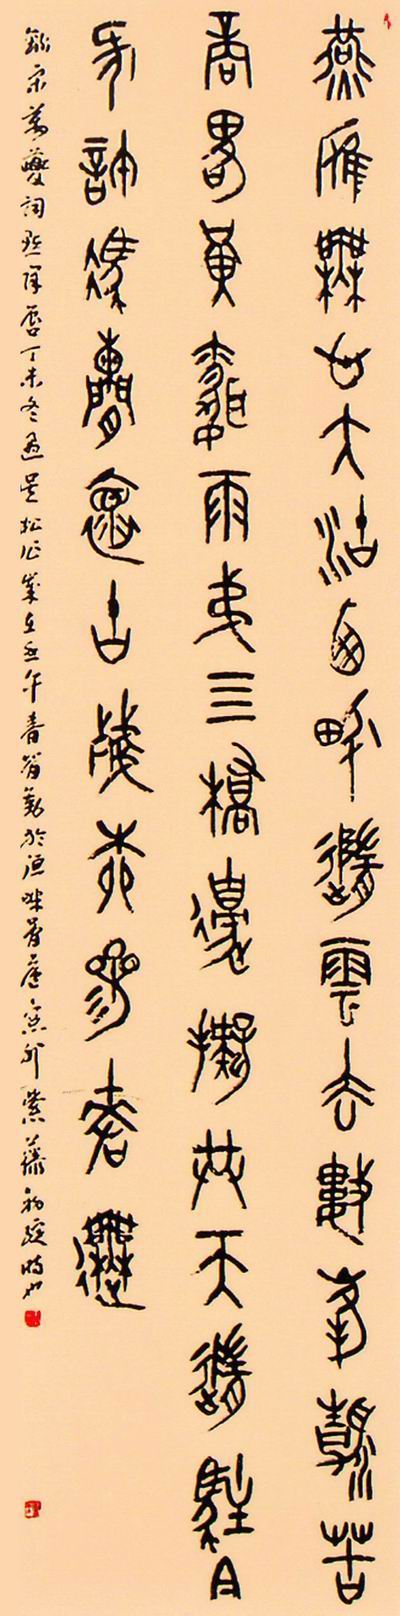 燕雁無心太湖西畔隨雲去數峰清苦
商略黃昏雨第四橋邊擬共天隨住今
何許憑闌懷古殘柳參差舞
錄宋姜夔詞點絳唇丁未冬過吳松作歲在丙午春於滬廬窗外紫藤初綻時也